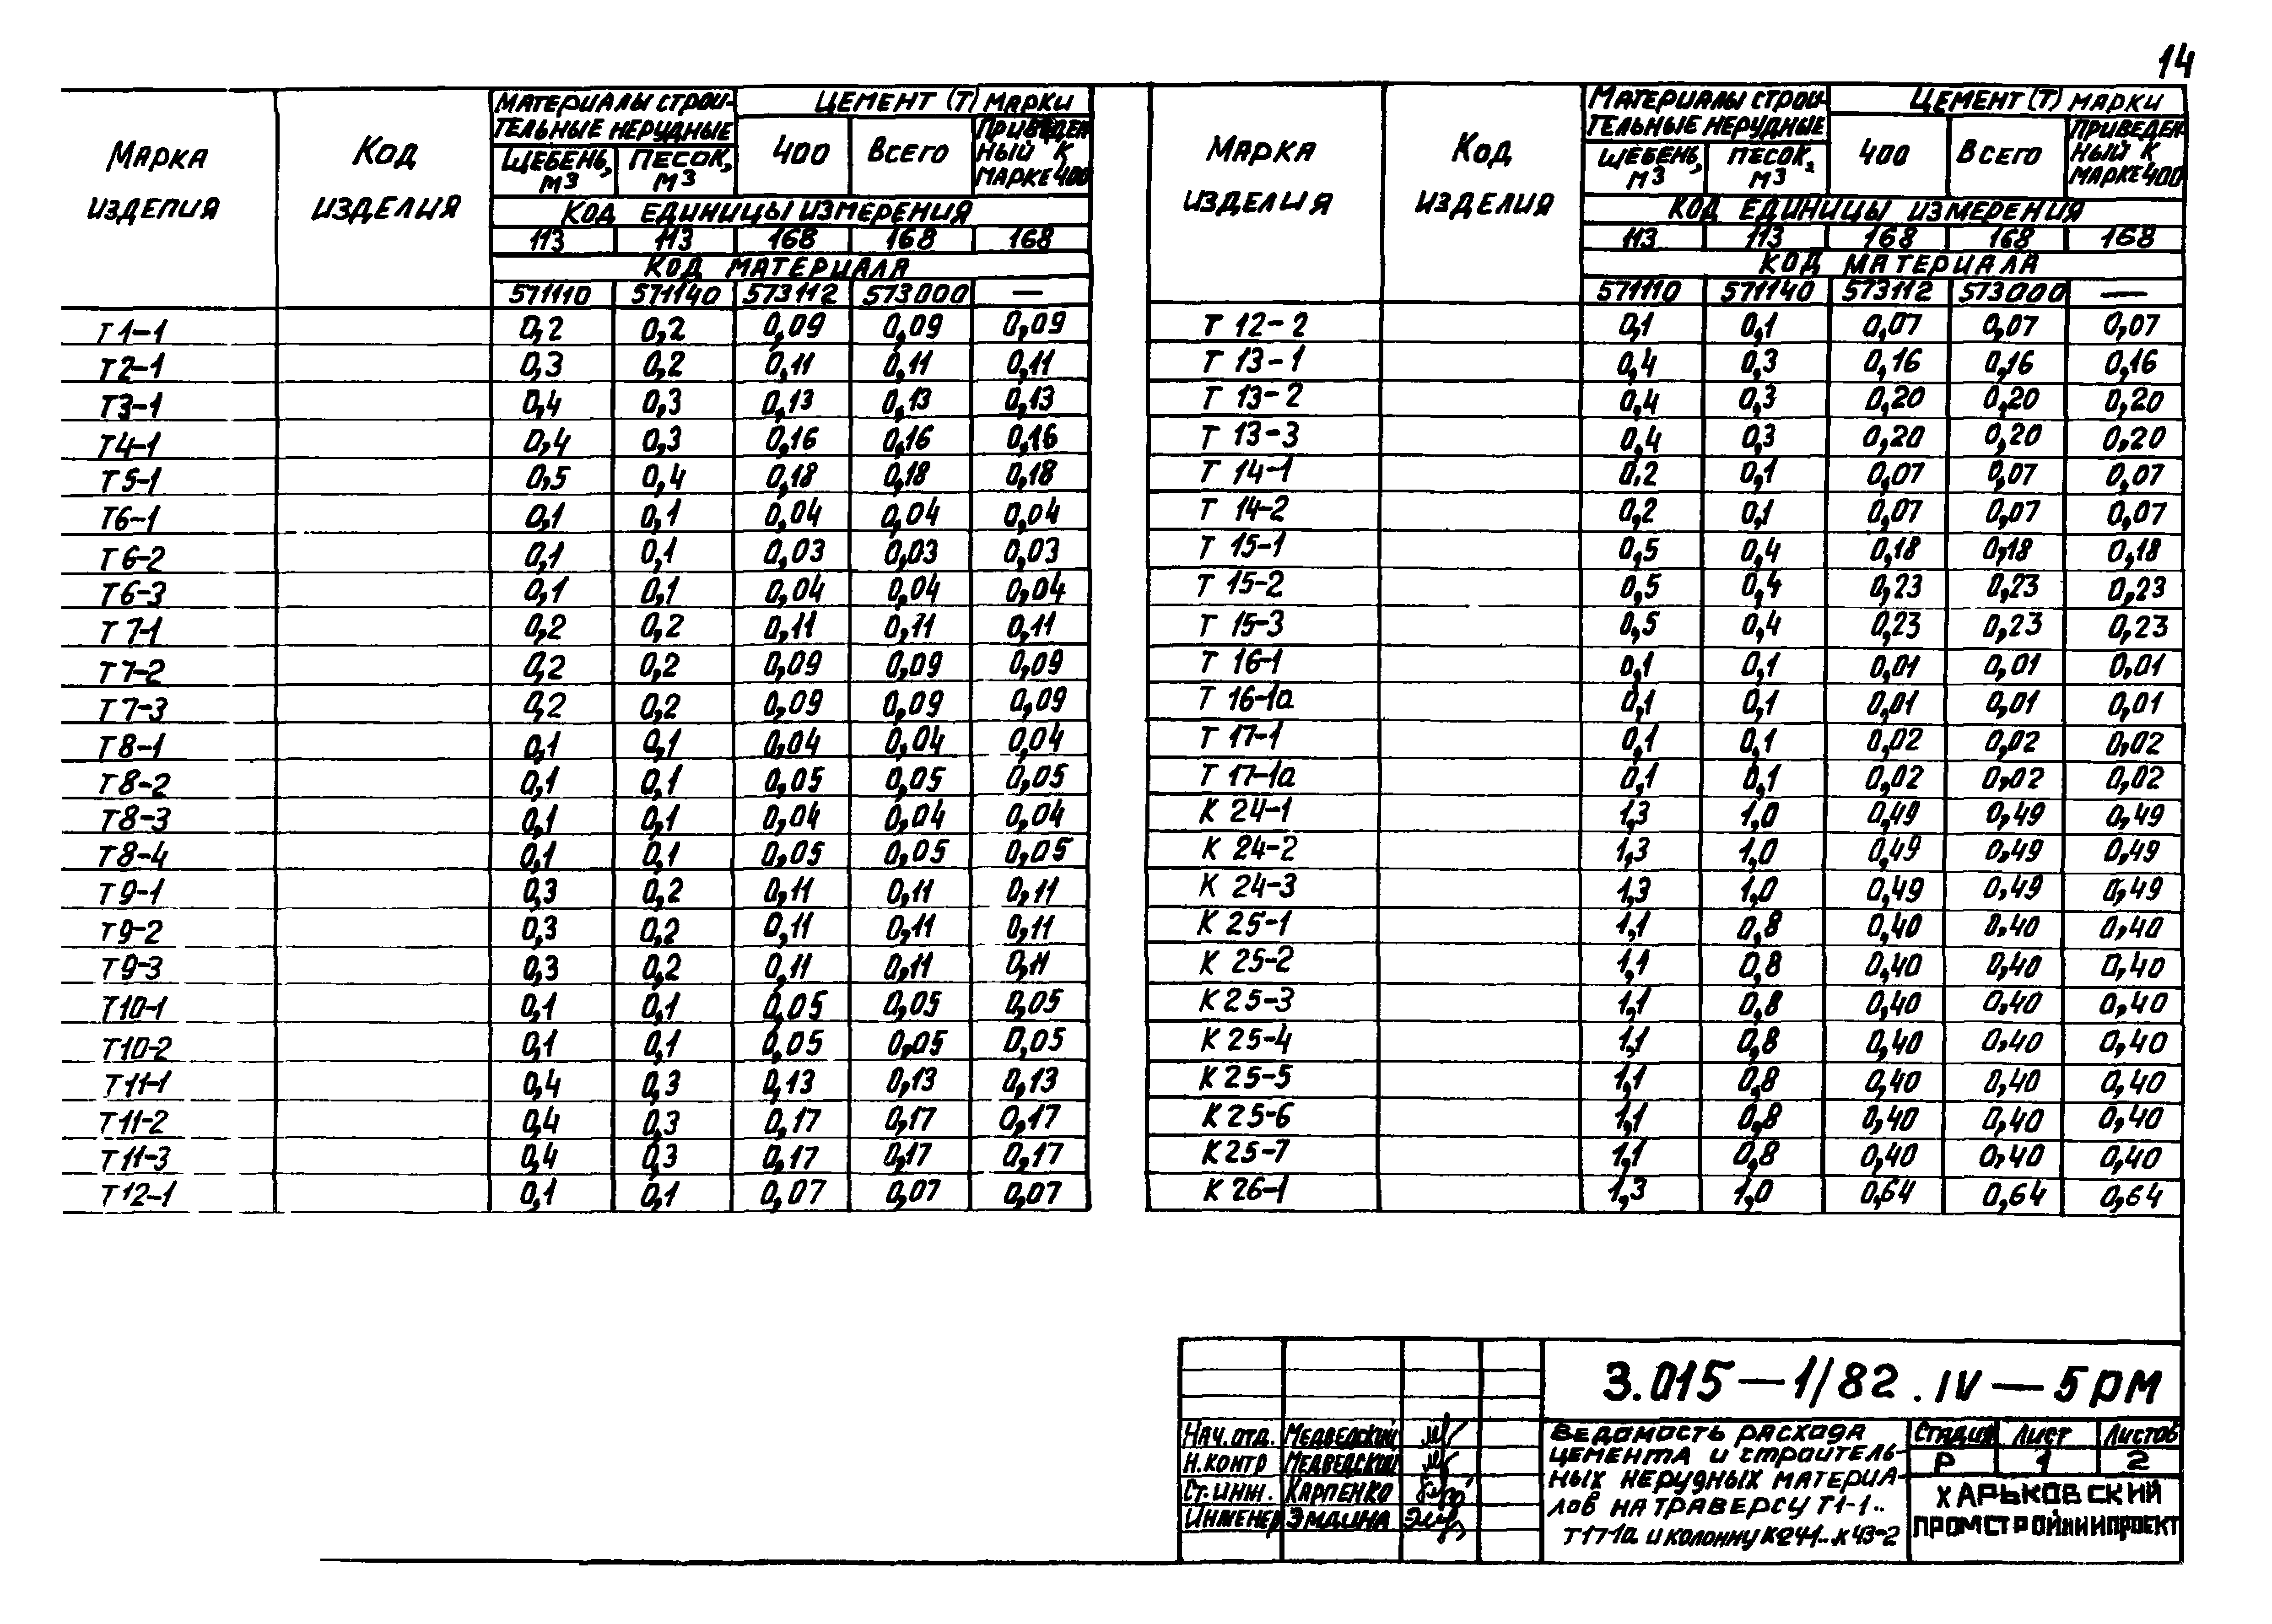 14
МАРКА ИЗДЕЛИЯ КОД ИЗДЕЛИЯ МАТЕРИАЛЫ СТРОИ-ТЕЛЬНЫЕ НЕРУДНЫЕ ЦЕМЕНТ (Т) МАРКИ
ЩЕБЕНЬ, М3 ПЕСОК, М3 400 ВСЕГО ПРИВЕДЕН-НЫЙ К МАРКЕ 400
КОД ЕДИНИЦЫ ИЗМЕРЕНИЯ
113 113 168 168 168
КОД МАТЕРИАЛА
571110 571140 573112 573000 —
Т1-1 0,2 0,2 0,09 0,09 0,09
Т2-1 0,3 0,2 0,11 0,11 0,11
Т3-1 0,4 0,3 0,13 0,13 0,13
Т4-1 0,4 0,3 0,16 0,16 0,16
Т5-1 0,5 0,4 0,18 0,18 0,18
Т6-1 0,1 0,1 0,04 0,04 0,04
Т6-2 0,1 0,1 0,03 0,03 0,03
Т6-3 0,1 0,1 0,04 0,04 0,04
Т7-1 0,2 0,2 0,11 0,11 0,11
Т7-2 0,2 0,2 0,09 0,09 0,09
Т7-3 0,2 0,2 0,09 0,09 0,09
Т8-1 0,1 0,1 0,04 0,04 0,04
Т8-2 0,1 0,1 0,05 0,05 0,05
Т8-3 0,1 0,1 0,04 0,04 0,04
Т8-4 0,1 0,1 0,05 0,05 0,05
Т9-1 0,3 0,2 0,11 0,11 0,11
Т9-2 0,3 0,2 0,11 0,11 0,11
Т9-3 0,3 0,2 0,11 0,11 0,11
Т10-1 0,1 0,1 0,05 0,05 0,05
Т10-2 0,1 0,1 0,05 0,05 0,05
Т11-1 0,4 0,3 0,13 0,13 0,13
Т11-2 0,4 0,3 0,17 0,17 0,17
Т11-3 0,4 0,3 0,17 0,17 0,17
Т12-1 0,1 0,1 0,07 0,07 0,07
МАРКА ИЗДЕЛИЯ КОД ИЗДЕЛИЯ МАТЕРИАЛЫ СТРОИ-ТЕЛЬНЫЕ НЕРУДНЫЕ ЦЕМЕНТ (Т) МАРКИ
ЩЕБЕНЬ, М3 ПЕСОК, М3 400 ВСЕГО ПРИВЕДЕН-НЫЙ К МАРКЕ 400
КОД ЕДИНИЦЫ ИЗМЕРЕНИЯ
113 113 168 168 168
КОД МАТЕРИАЛА
571110 571140 573112 573000 —
Т 12-2 0,1 0,1 0,07 0,07 0,07
Т 13-1 0,4 0,3 0,16 0,16 0,16
Т 13-2 0,4 0,3 0,20 0,20 0,20
Т 13-3 0,4 0,3 0,20 0,20 0,20
Т 14-1 0,2 0,1 0,07 0,07 0,07
Т 14-2 0,2 0,1 0,07 0,07 0,07
Т 15-1 0,5 0,4 0,18 0,18 0,18
Т 15-2 0,5 0,4 0,23 0,23 0,23
Т 15-3 0,5 0,4 0,23 0,23 0,23
Т 16-1 0,1 0,1 0,01 0,01 0,01
Т 16-1а 0,1 0,1 0,01 0,01 0,01
Т 17-1 0,1 0,1 0,02 0,02 0,02
Т 17-1а 0,1 0,1 0,02 0,02 0,02
К 24-1 1,3 1,0 0,49 0,49 0,49
К 24-2 1,3 1,0 0,49 0,49 0,49
К 24-3 1,3 1,0 0,49 0,49 0,49
К 25-1 1,1 0,8 0,40 0,40 0,40
К 25-2 1,1 0,8 0,40 0,40 0,40
К 25-3 1,1 0,8 0,40 0,40 0,40
К 25-4 1,1 0,8 0,40 0,40 0,40
К 25-5 1,1 0,8 0,40 0,40 0,40
К 25-6 1,1 0,8 0,40 0,40 0,40
К 25-7 1,1 0,8 0,40 0,40 0,40
К 26-1 1,3 1,0 0,64 0,64 0,64
3.015-1/82.IV-5РМ
НАЧ.ОТД. МЕДВЕДСКИЙ
Н.КОНТР МЕДВЕДСКИЙ
СТ.ИНЖ. КАРПЕНКО
ИНЖЕНЕР ЭМДИНА
ВЕДОМОСТЬ РАСХОДА
ЦЕМЕНТА И СТРОИТЕЛЬ-
НЫХ НЕРУДНЫХ МАТЕРИА-
ЛОВ НА ТРАВЕРСУ Т1-1..
Т17-1а И КОЛОННУ К24-1..К43-2
СТАДИЯ ЛИСТ ЛИСТОВ
Р 1 2
ХАРЬКОВСКИЙ
ПРОМСТРОЙНИИПРОЕКТ